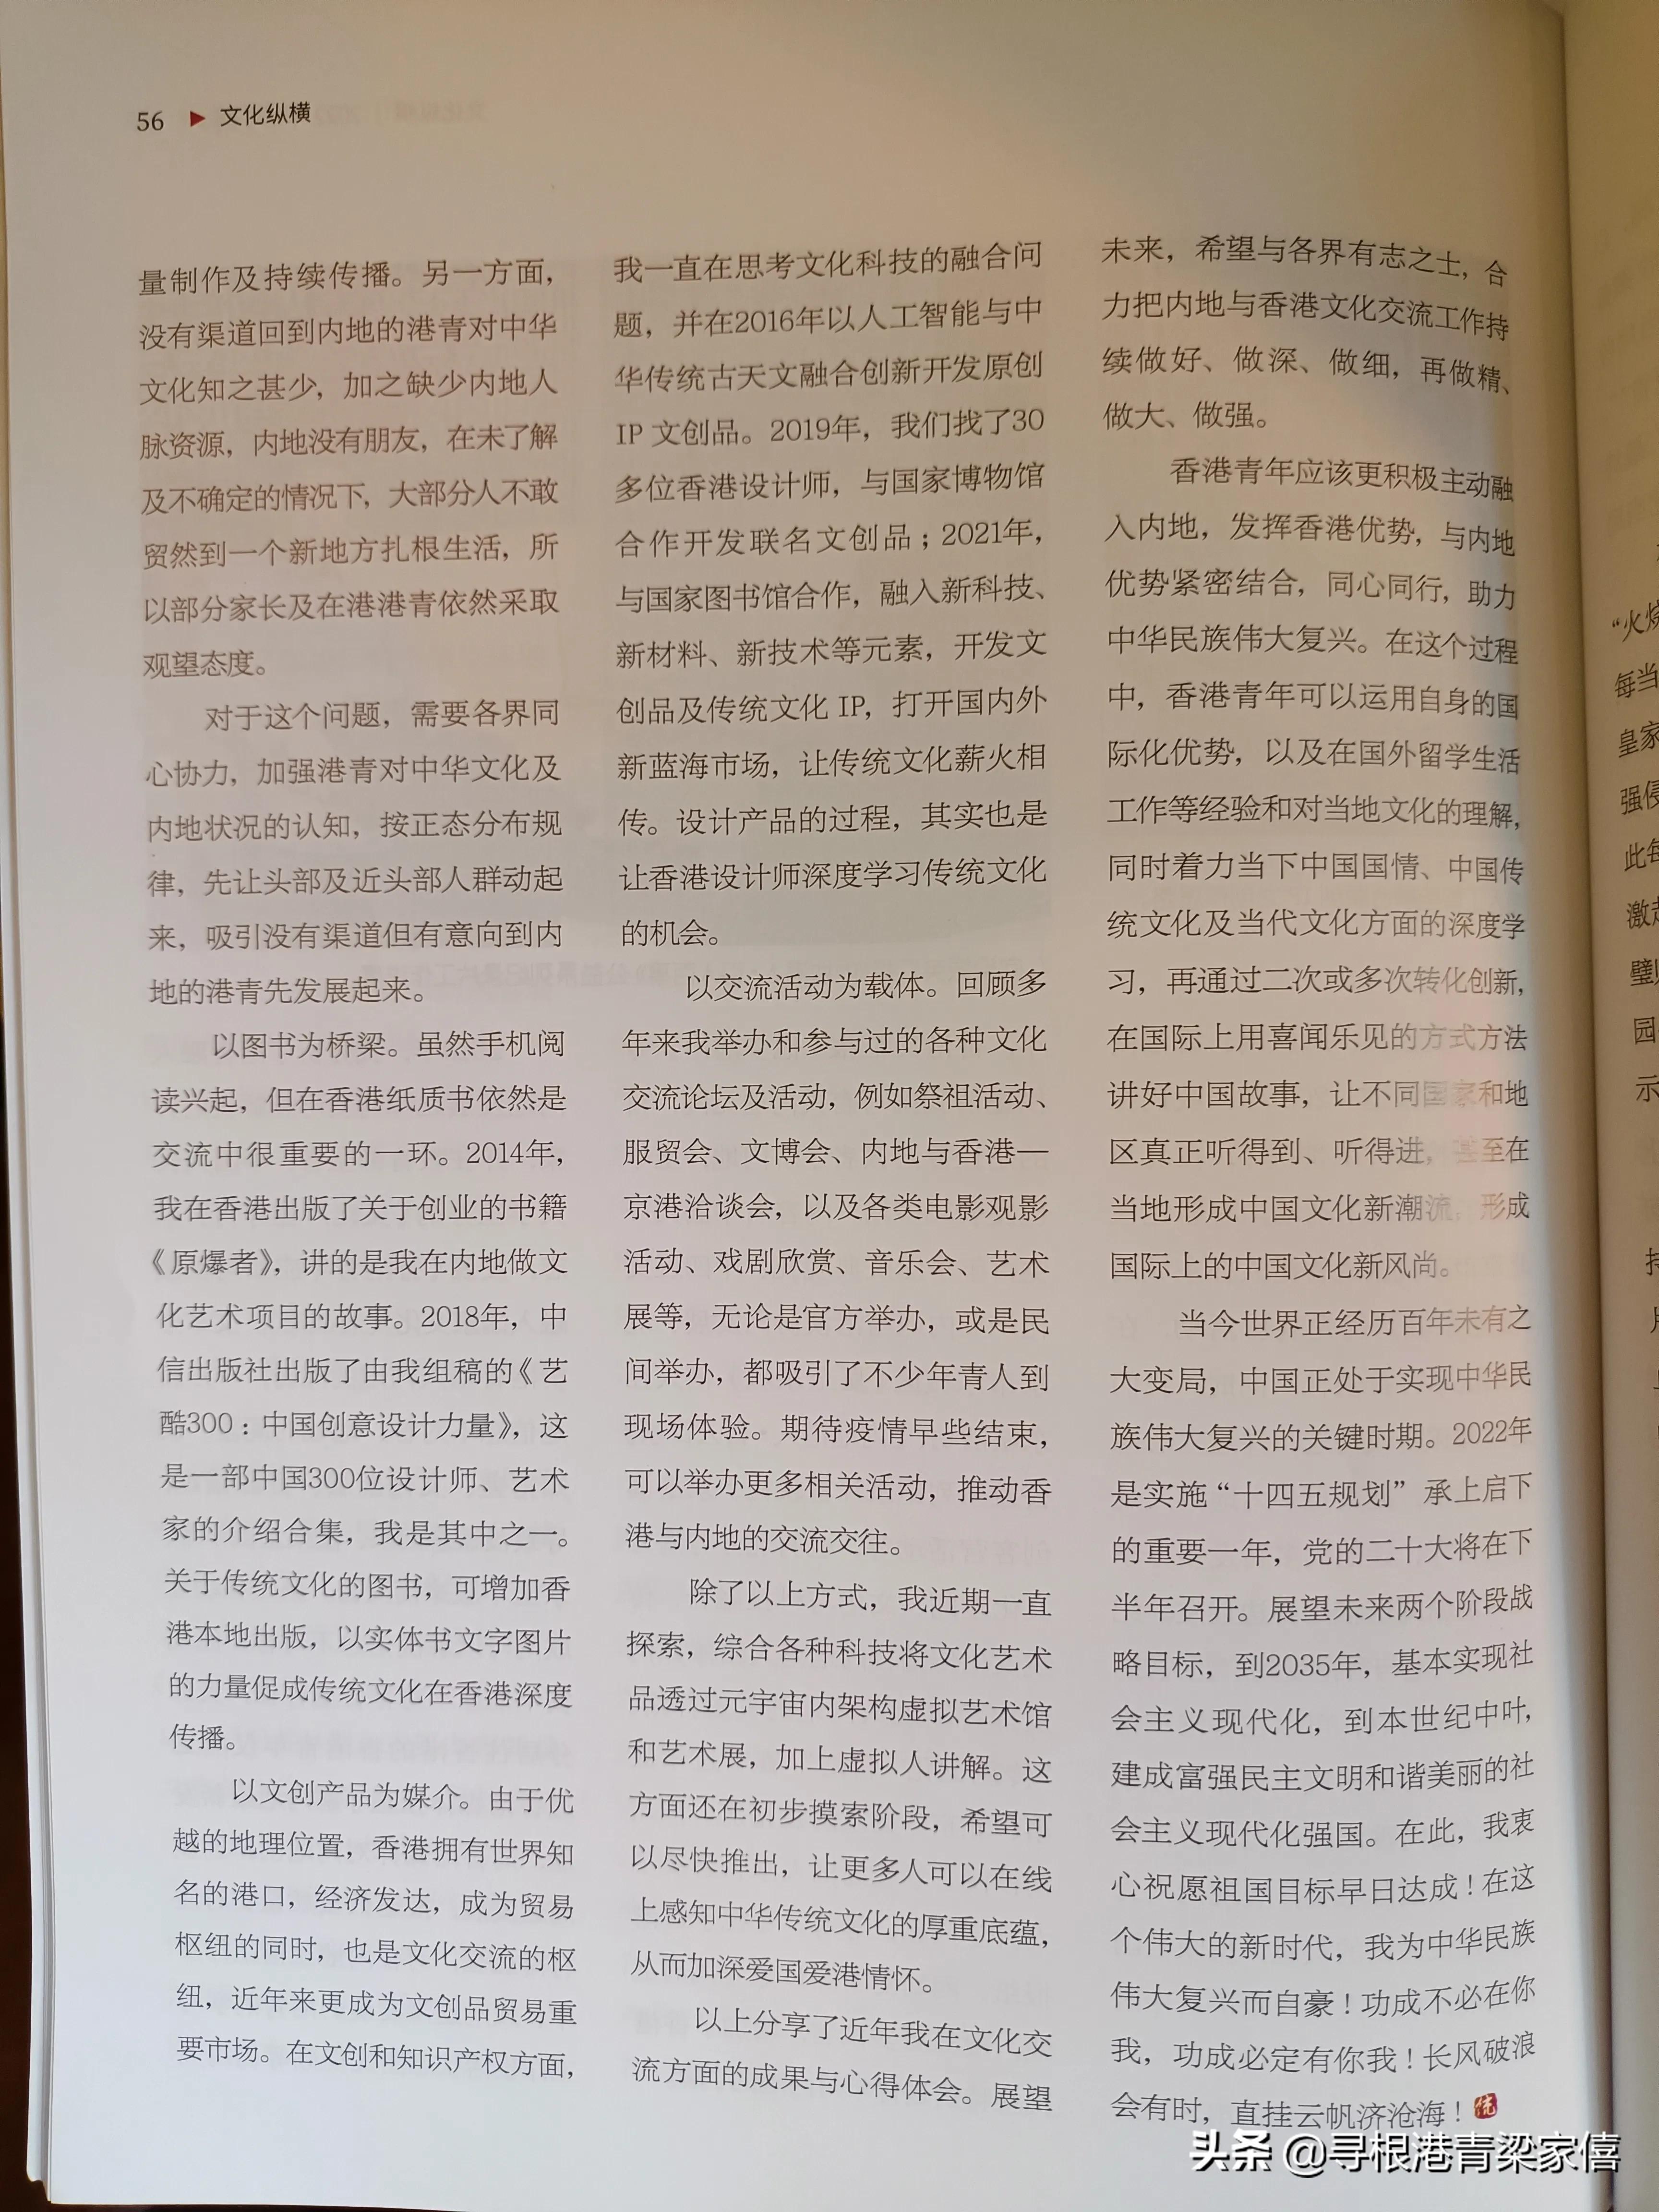 56 ▶ 文化纵横
量制作及持续传播。另一方面，
没有渠道回到内地的港青对中华
文化知之甚少，加之缺少内地人
脉资源，内地没有朋友，在未了解
及不确定的情况下，大部分人不敢
贸然到一个新地方扎根生活，所
以部分家长及在港港青依然采取
观望态度。
对于这个问题，需要各界同
心协力，加强港青对中华文化及
内地状况的认知，按正态分布规
律，先让头部及近头部人群动起
来，吸引没有渠道但有意向到内
地的港青先发展起来。
以图书为桥梁。虽然手机阅
读兴起，但在香港纸质书依然是
交流中很重要的一环。2014年，
我在香港出版了关于创业的书籍
《原爆者》，讲的是我在内地做文
化艺术项目的故事。2018年，中
信出版社出版了由我组稿的《艺
酷300：中国创意设计力量》，这
是一部中国300位设计师、艺术
家的介绍合集，我是其中之一。
关于传统文化的图书，可增加香
港本地出版，以实体书文字图片
的力量促成传统文化在香港深度
传播。
以文创产品为媒介。由于优
越的地理位置，香港拥有世界知
名的港口，经济发达，成为贸易
枢纽的同时，也是文化交流的枢
纽，近年来更成为文创品贸易重
要市场。在文创和知识产权方面，
我一直在思考文化科技的融合问
题，并在2016年以人工智能与中
华传统古天文融合创新开发原创
IP 文创品。2019年，我们找了30
多位香港设计师，与国家博物馆
合作开发联名文创品；2021年，
与国家图书馆合作，融入新科技、
新材料、新技术等元素，开发文
创品及传统文化 IP，打开国内外
新蓝海市场，让传统文化薪火相
传。设计产品的过程，其实也是
让香港设计师深度学习传统文化
的机会。
以交流活动为载体。回顾多
年来我举办和参与过的各种文化
交流论坛及活动，例如祭祖活动、
服贸会、文博会、内地与香港—
京港洽谈会，以及各类电影观影
活动、戏剧欣赏、音乐会、艺术
展等，无论是官方举办，或是民
间举办，都吸引了不少年青人到
现场体验。期待疫情早些结束，
可以举办更多相关活动，推动香
港与内地的交流交往。
除了以上方式，我近期一直
探索，综合各种科技将文化艺术
品透过元宇宙内架构虚拟艺术馆
和艺术展，加上虚拟人讲解。这
方面还在初步摸索阶段，希望可
以尽快推出，让更多人可以在线
上感知中华传统文化的厚重底蕴，
从而加深爱国爱港情怀。
以上分享了近年我在文化交
流方面的成果与心得体会。展望
未来，希望与各界有志之士，合
力把内地与香港文化交流工作持
续做好、做深、做细，再做精、
做大、做强。
香港青年应该更积极主动融
入内地，发挥香港优势，与内地
优势紧密结合，同心同行，助力
中华民族伟大复兴。在这个过程
中，香港青年可以运用自身的国
际化优势，以及在国外留学生活
工作等经验和对当地文化的理解，
同时着力当下中国国情、中国传
统文化及当代文化方面的深度学
习，再通过二次或多次转化创新，
在国际上用喜闻乐见的方式方法
讲好中国故事，让不同国家和地
区真正听得到、听得进，甚至在
当地形成中国文化新潮流，形成
国际上的中国文化新风尚。
当今世界正经历百年未有之
大变局，中国正处于实现中华民
族伟大复兴的关键时期。2022年
是实施“十四五规划”承上启下
的重要一年，党的二十大将在下
半年召开。展望未来两个阶段战
略目标，到2035年，基本实现社
会主义现代化，到本世纪中叶，
建成富强民主文明和谐美丽的社
会主义现代化强国。在此，我衷
心祝愿祖国目标早日达成！在这
个伟大的新时代，我为中华民族
伟大复兴而自豪！功成不必在你
我，功成必定有你我！长风破浪
会有时，直挂云帆济沧海！统
“火烧
每当
皇家
强侵
此每
激起
璧
园
示
持
头条 @寻根港青梁家僖